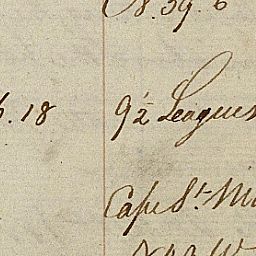 8. 39. 6
. 18 9½ Leagues
Cape St. Ma